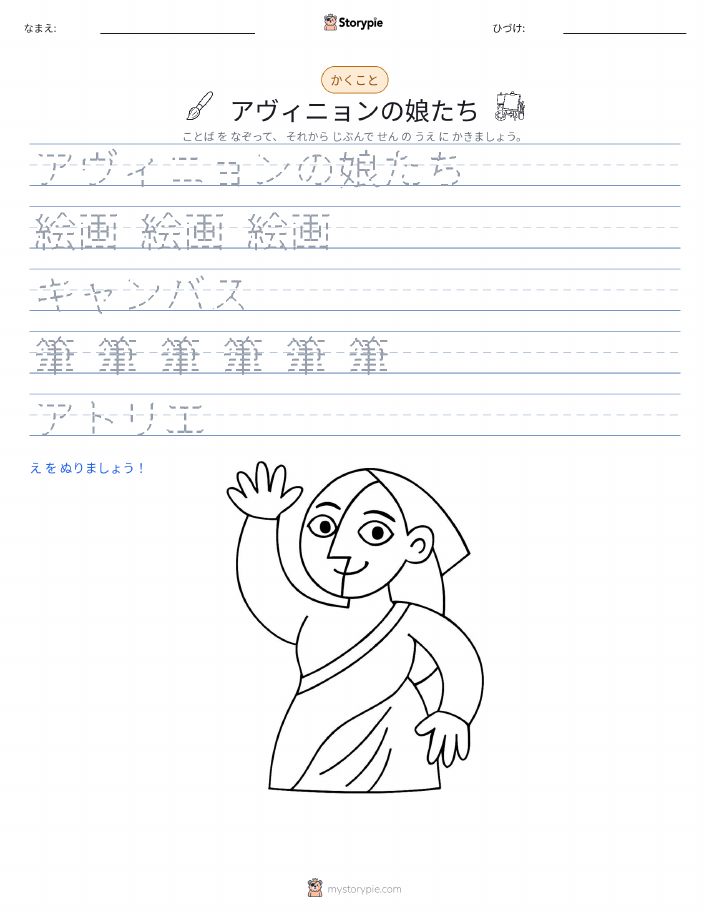 なまえ:
Storypie
ひづけ:
かくこと
アヴィニョンの娘たち
ことば を なぞって、 それから じぶんで せん の うえ に かきましょう。
アヴィニョンの娘たち
絵画 絵画 絵画
キャンバス
筆 筆 筆 筆 筆 筆
アトリエ
え を ぬりましょう！
mystorypie.com